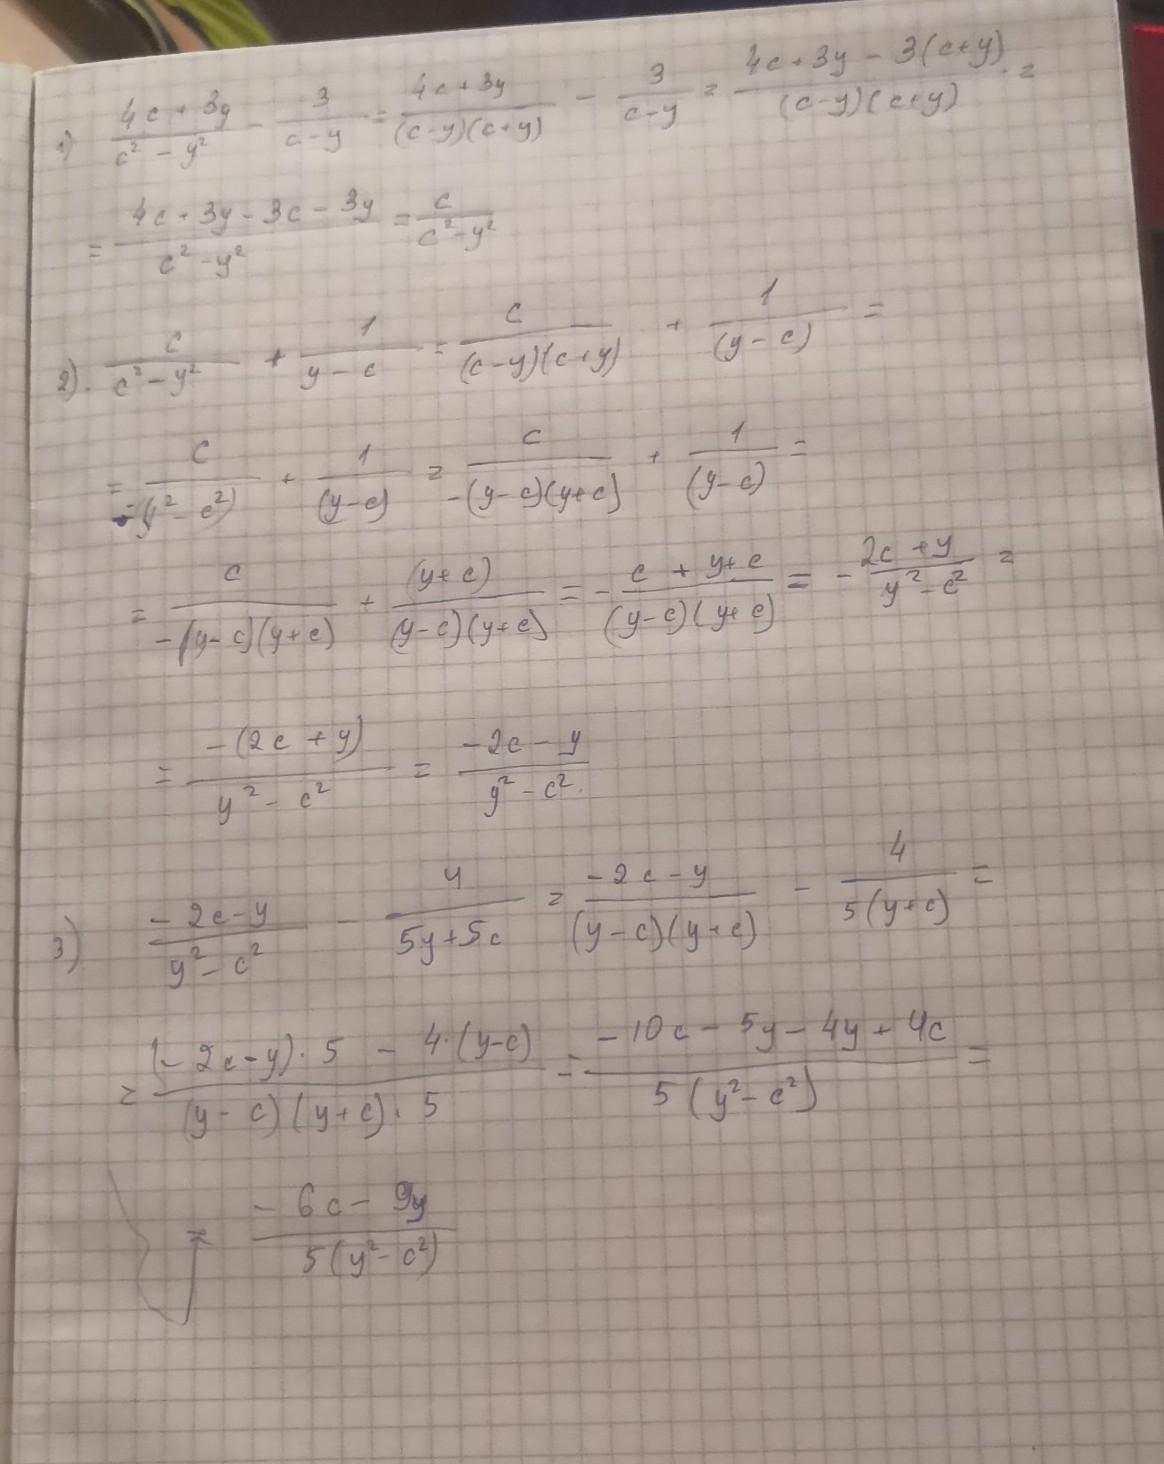 1) (4c + 3y)/(c² - y²) - 3/(c - y) = (4c + 3y)/((c-y)(c+y)) - 3/(c-y) = (4c + 3y - 3(c+y))/((c-y)(c+y)) =
= (4c + 3y - 3c - 3y)/(c² - y²) = c/(c² - y²)
2). c/(c² - y²) + 1/(y - c) = c/((c-y)(c+y)) + 1/((y - c)) =
= c/(-(y² - c²)) + 1/((y-c)) = c/(-(y-c)(y+c)) + 1/((y-c)) =
= c/(-(y-c)(y+c)) + (y+c)/((y-c)(y+c)) = - (c + y + c)/((y-c)(y+c)) = - (2c + y)/(y² - c²) =
= (-(2c + y))/(y² - c²) = (-2c - y)/(y² - c²)
3) (-2c - y)/(y² - c²) - 4/(5y + 5c) = (-2c - y)/((y-c)(y+c)) - 4/(5(y+c)) =
= ((-2c - y)·5 - 4·(y-c))/((y-c)(y+c)·5) = (-10c - 5y - 4y + 4c)/(5(y² - c²)) =
= (-6c - 9y)/(5(y² - c²))